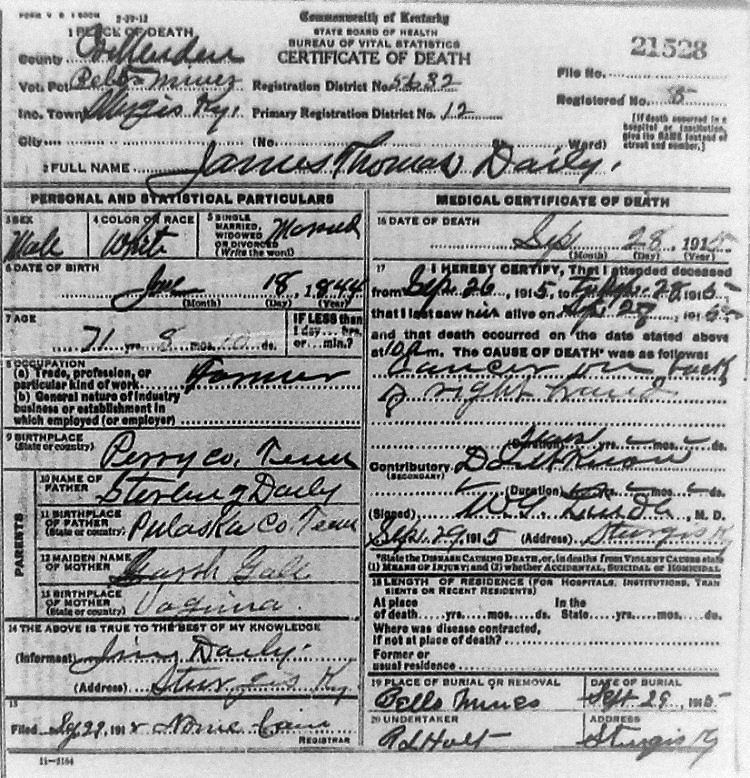 FORM V. S. 1 2-29-12
Commonwealth of Kentucky
STATE BOARD OF HEALTH
BUREAU OF VITAL STATISTICS
CERTIFICATE OF DEATH
21528
1 PLACE OF DEATH
County Crittenden
Vot. Pct. Bells Mines
Inc. Town Sturgis Ky.
City
Registration District No. 5632
Primary Registration District No. 12
(No. St. Ward)
File No.
Registered No. 8
[If death occurred in a
hospital or institution,
give its NAME instead of
street and number.]
2 FULL NAME James Thomas Daily.
PERSONAL AND STATISTICAL PARTICULARS
3 SEX
Male
4 COLOR OR RACE
White
5 SINGLE
MARRIED,
WIDOWED
OR DIVORCED
(Write the word)
Married
6 DATE OF BIRTH
18, 1844
(Month) (Day) (Year)
7 AGE
71 yrs. 8 mos. 10 ds.
IF LESS than
1 day... hrs.
or... min.?
8 OCCUPATION
(a) Trade, profession, or
particular kind of work Farmer
(b) General nature of industry
business or establishment in
which employed (or employer)
9 BIRTHPLACE
(State or country)
Perry Co. Tenn
PARENTS
10 NAME OF
FATHER
Sterling Daily
11 BIRTHPLACE
OF FATHER
(State or country)
Pulaska Co Tenn
12 MAIDEN NAME
OF MOTHER
13 BIRTHPLACE
OF MOTHER
(State or country)
14 THE ABOVE IS TRUE TO THE BEST OF MY KNOWLEDGE
(Informant) Daily.
(Address) Sturgis Ky
15
Filed 29, 191
REGISTRAR
11-3164
MEDICAL CERTIFICATE OF DEATH
16 DATE OF DEATH
Sep 28 1915
(Month) (Day) (Year)
17 I HEREBY CERTIFY, That I attended deceased
from Sep. 26, 1915, to Sep. 28, 1915
that I last saw him alive on Sep. 28, 1915
and that death occurred on the date stated above
at 10 a.m. The CAUSE OF DEATH* was as follows:
Cancer on back
of right hand
(Duration) yrs. mos. ds.
Contributory Don't Know
(SECONDARY)
(Duration) yrs. mos. ds.
(Signed) M. D.
Sept. 29, 1915 (Address) Sturgis Ky
*State the DISEASE CAUSING DEATH, or, in deaths from VIOLENT CAUSES state
(1) MEANS OF INJURY; and (2) whether ACCIDENTAL, SUICIDAL or HOMICIDAL
18 LENGTH OF RESIDENCE (FOR HOSPITALS, INSTITUTIONS, TRAN
SIENTS OR RECENT RESIDENTS)
At place In the
of death yrs. mos. ds. State yrs. mos. ds.
Where was disease contracted,
if not at place of death?
Former or
usual residence
19 PLACE OF BURIAL OR REMOVAL
Bells Mines
DATE OF BURIAL
Sept 29, 1915
20 UNDERTAKER
R L Holt
ADDRESS
Sturgis Ky